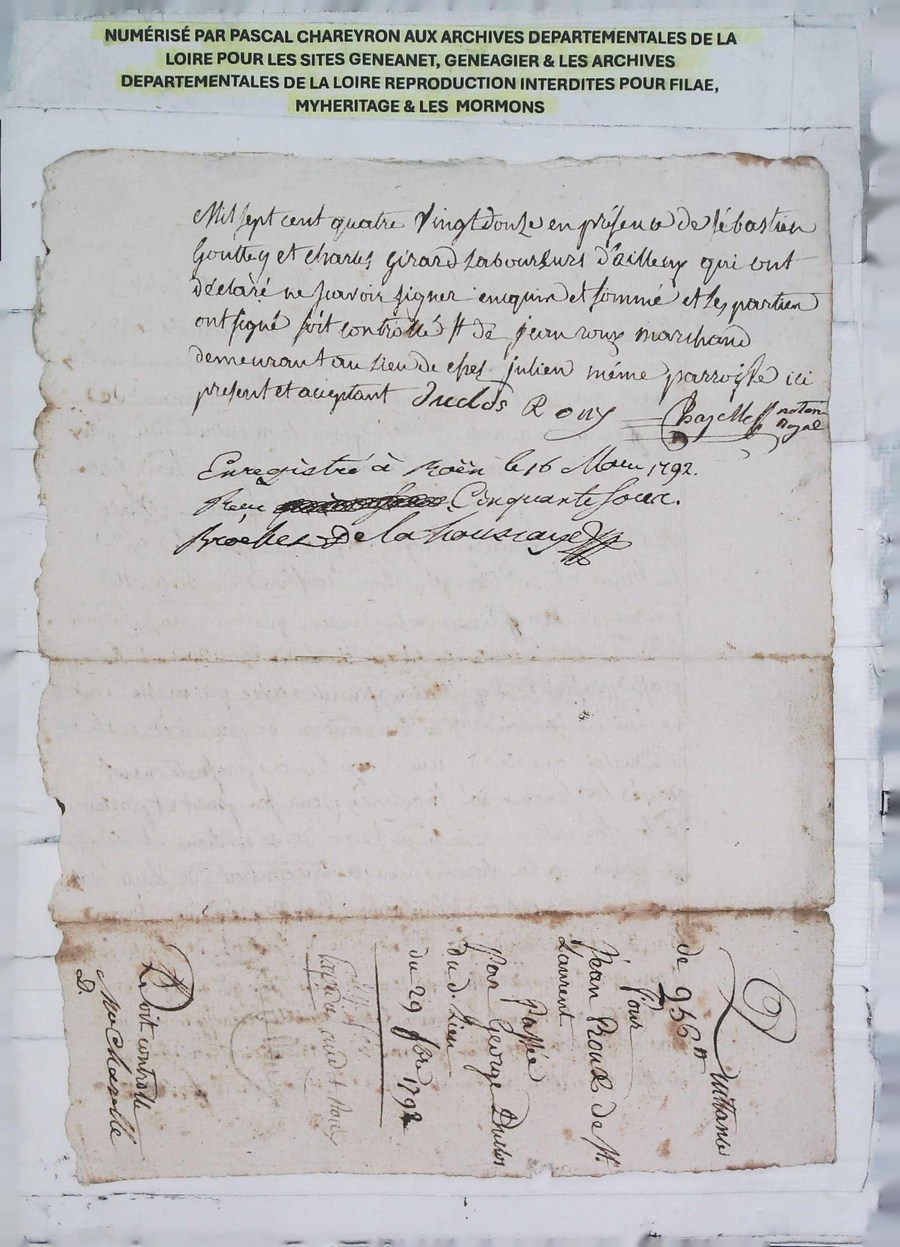 NUMÉRISÉ PAR PASCAL CHAREYRON AUX ARCHIVES DEPARTEMENTALES DE LA
LOIRE POUR LES SITES GENEANET, GENEAGIER & LES ARCHIVES
DEPARTEMENTALES DE LA LOIRE REPRODUCTION INTERDITES POUR FILAE,
MYHERITAGE & LES MORMONS
Mil sept cent quatre vingt douze en présence de sébastien
Gouttey et charles Girard Laboureurs d'ailleux qui ont
déclaré ne scavoir signer enquis et sommé et les parties
ont signé soit controllé # de jean roux marchand
demeurant au lieu de ches julien même parroisse ici
présent et aceptant Duclos Roux Chazelles notaire
Royal
Enregistré à le 16 Mars 1792.
Reçu Cinquante sous.
de la
Quittance
de 956 tt
Pour
Jean Roux de St
Laurent
Passée
Par George Duclos
du d. Lieu
du 29 fbre 1792
Doit controlle
D.